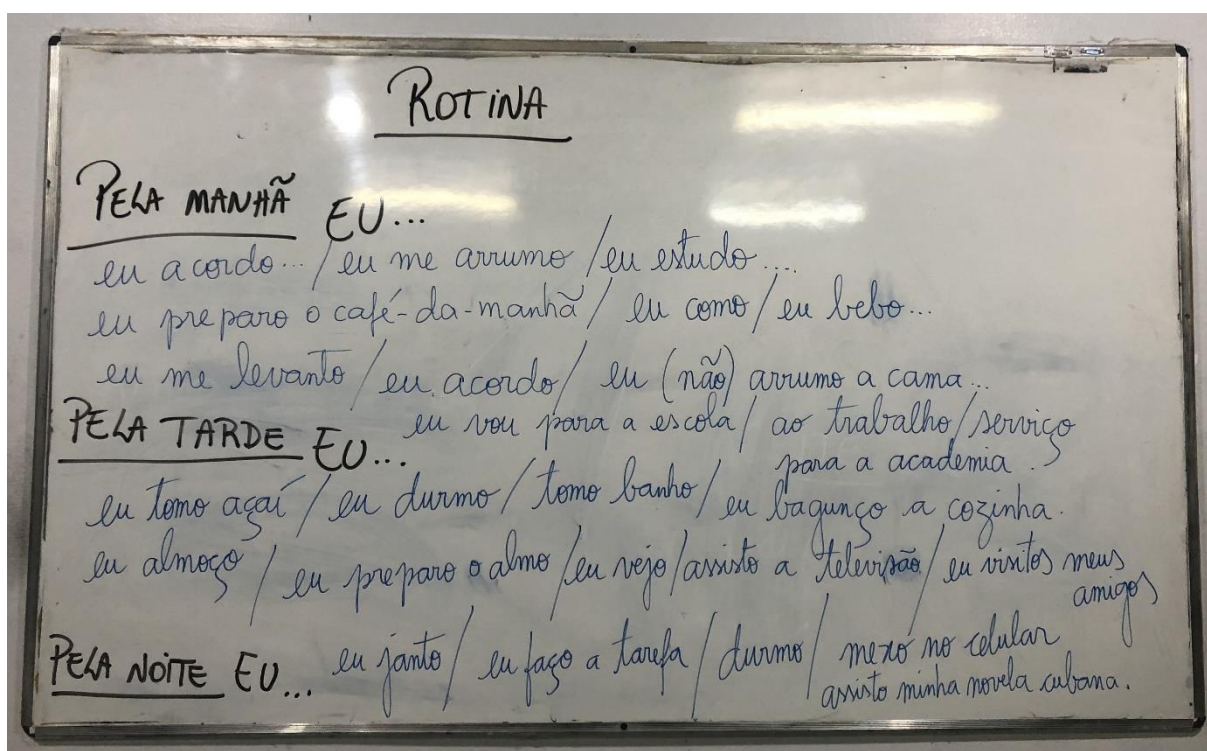 ROTINA
PELA MANHÃ EU...
eu acordo... / eu me arrumo / eu estudo....
eu preparo o café-da-manhã / eu como / eu bebo...
eu me levanto / eu acordo / eu (não) arrumo a cama...
PELA TARDE EU... eu vou para a escola / ao trabalho / serviço
para a academia.
eu tomo açaí / eu durmo / tomo banho / eu bagunço a cozinha.
eu almoço / eu preparo o almo / eu vejo / assisto a televisão / eu visitos meus
amigos
PELA NOITE EU... eu janto / eu faço a tarefa / durmo / mexo no celular
assisto minha novela cubana.